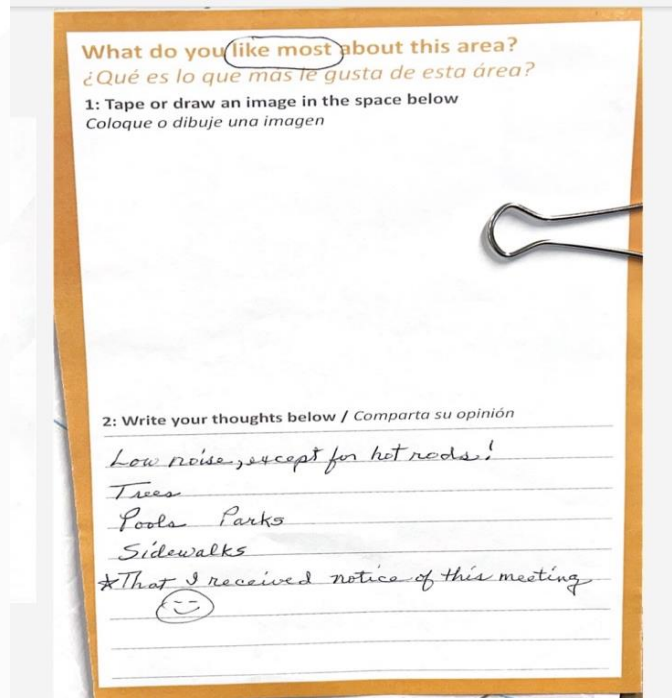 What do you like most about this area?
¿Qué es lo que más le gusta de esta área?
1: Tape or draw an image in the space below
Coloque o dibuje una imagen
2: Write your thoughts below / Comparta su opinión
Low noise, except for hot rods!
Trees
Pools Parks
Sidewalks
*That I received notice of this meeting